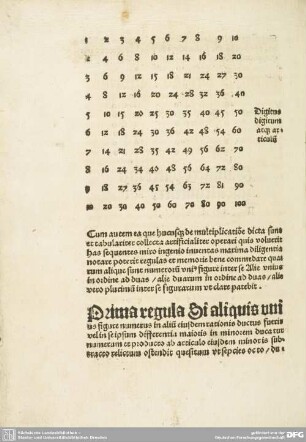 1 2 3 4 5 6 7 8 9 10
2 4 6 8 10 12 14 16 18 20
3 6 9 12 15 18 21 24 27 30
4 8 12 16 20 24 28 32 36 40
5 10 15 20 25 30 35 40 45 50
6 12 18 24 30 36 42 48 54 60
7 14 21 28 35 42 49 56 62 70
8 16 24 32 40 48 56 64 72 80
9 18 27 36 45 54 63 72 81 90
10 20 30 40 50 60 70 80 90 100
Digitus
digitum
atqȝ ar-
ticulū
Cum autem ea que hucusqȝ de multiplicatiōe dicta sunt
et tabulariter collecta artificialiter operari quis voluerit
has sequentes miro ingenio inuentas maxima diligentia
notare poterit regulas et memorie bene commendare quā
rum alique sunt numerorū uniꝰ figure inter se Alie unius
in ordine ad duas / alie duarum in ordine ad duas / alie
vero plurimū inter se figurarum ut clare patebit.
Prima regula Si aliquis uni
us figure numerus in aliū eiusdem rationis ductus fuerit
vel in seipsum differentia maioris in minorem ducatur
numerum et producto ab articulo eiusdem minoris sub-
tracto relictum ostendit quesitum ut sepcies octo / du-